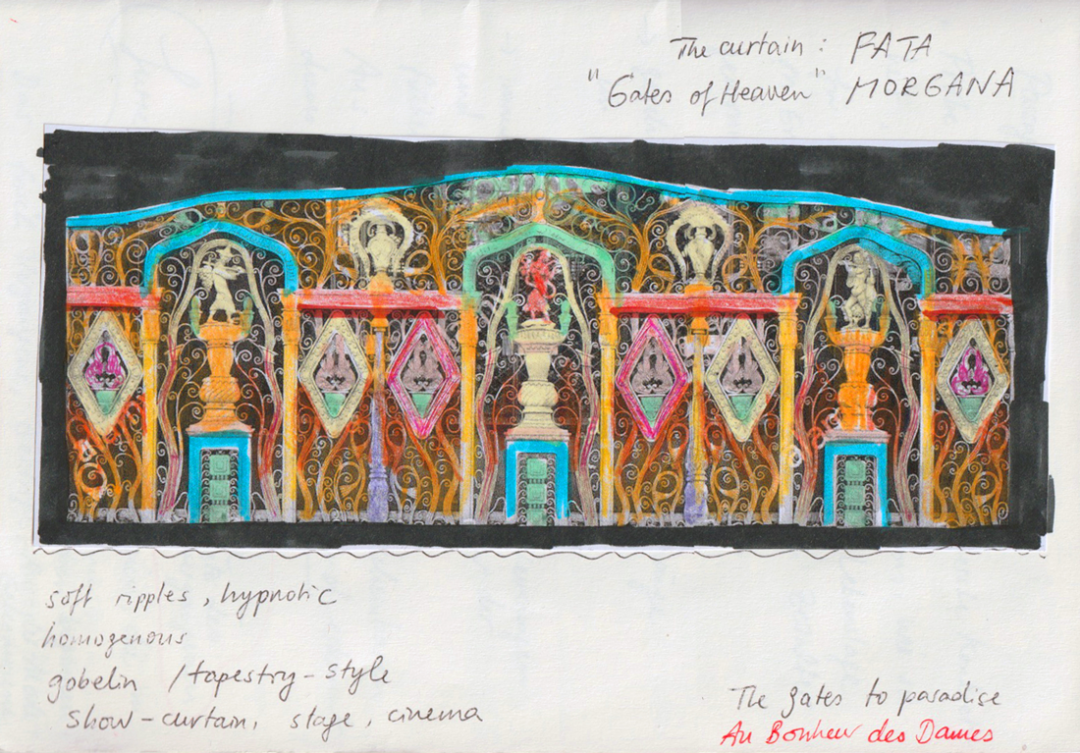 The curtain : FATA
"Gates of Heaven" MORGANA
soft ripples, hypnotic
homogenous
gobelin / tapestry-style
show-curtain, stage, cinema
The gates to paradise
Au Bonheur des Dames